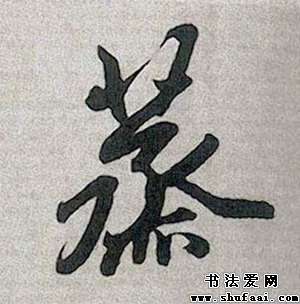 蒸
书法爱网
www.shufaai.com